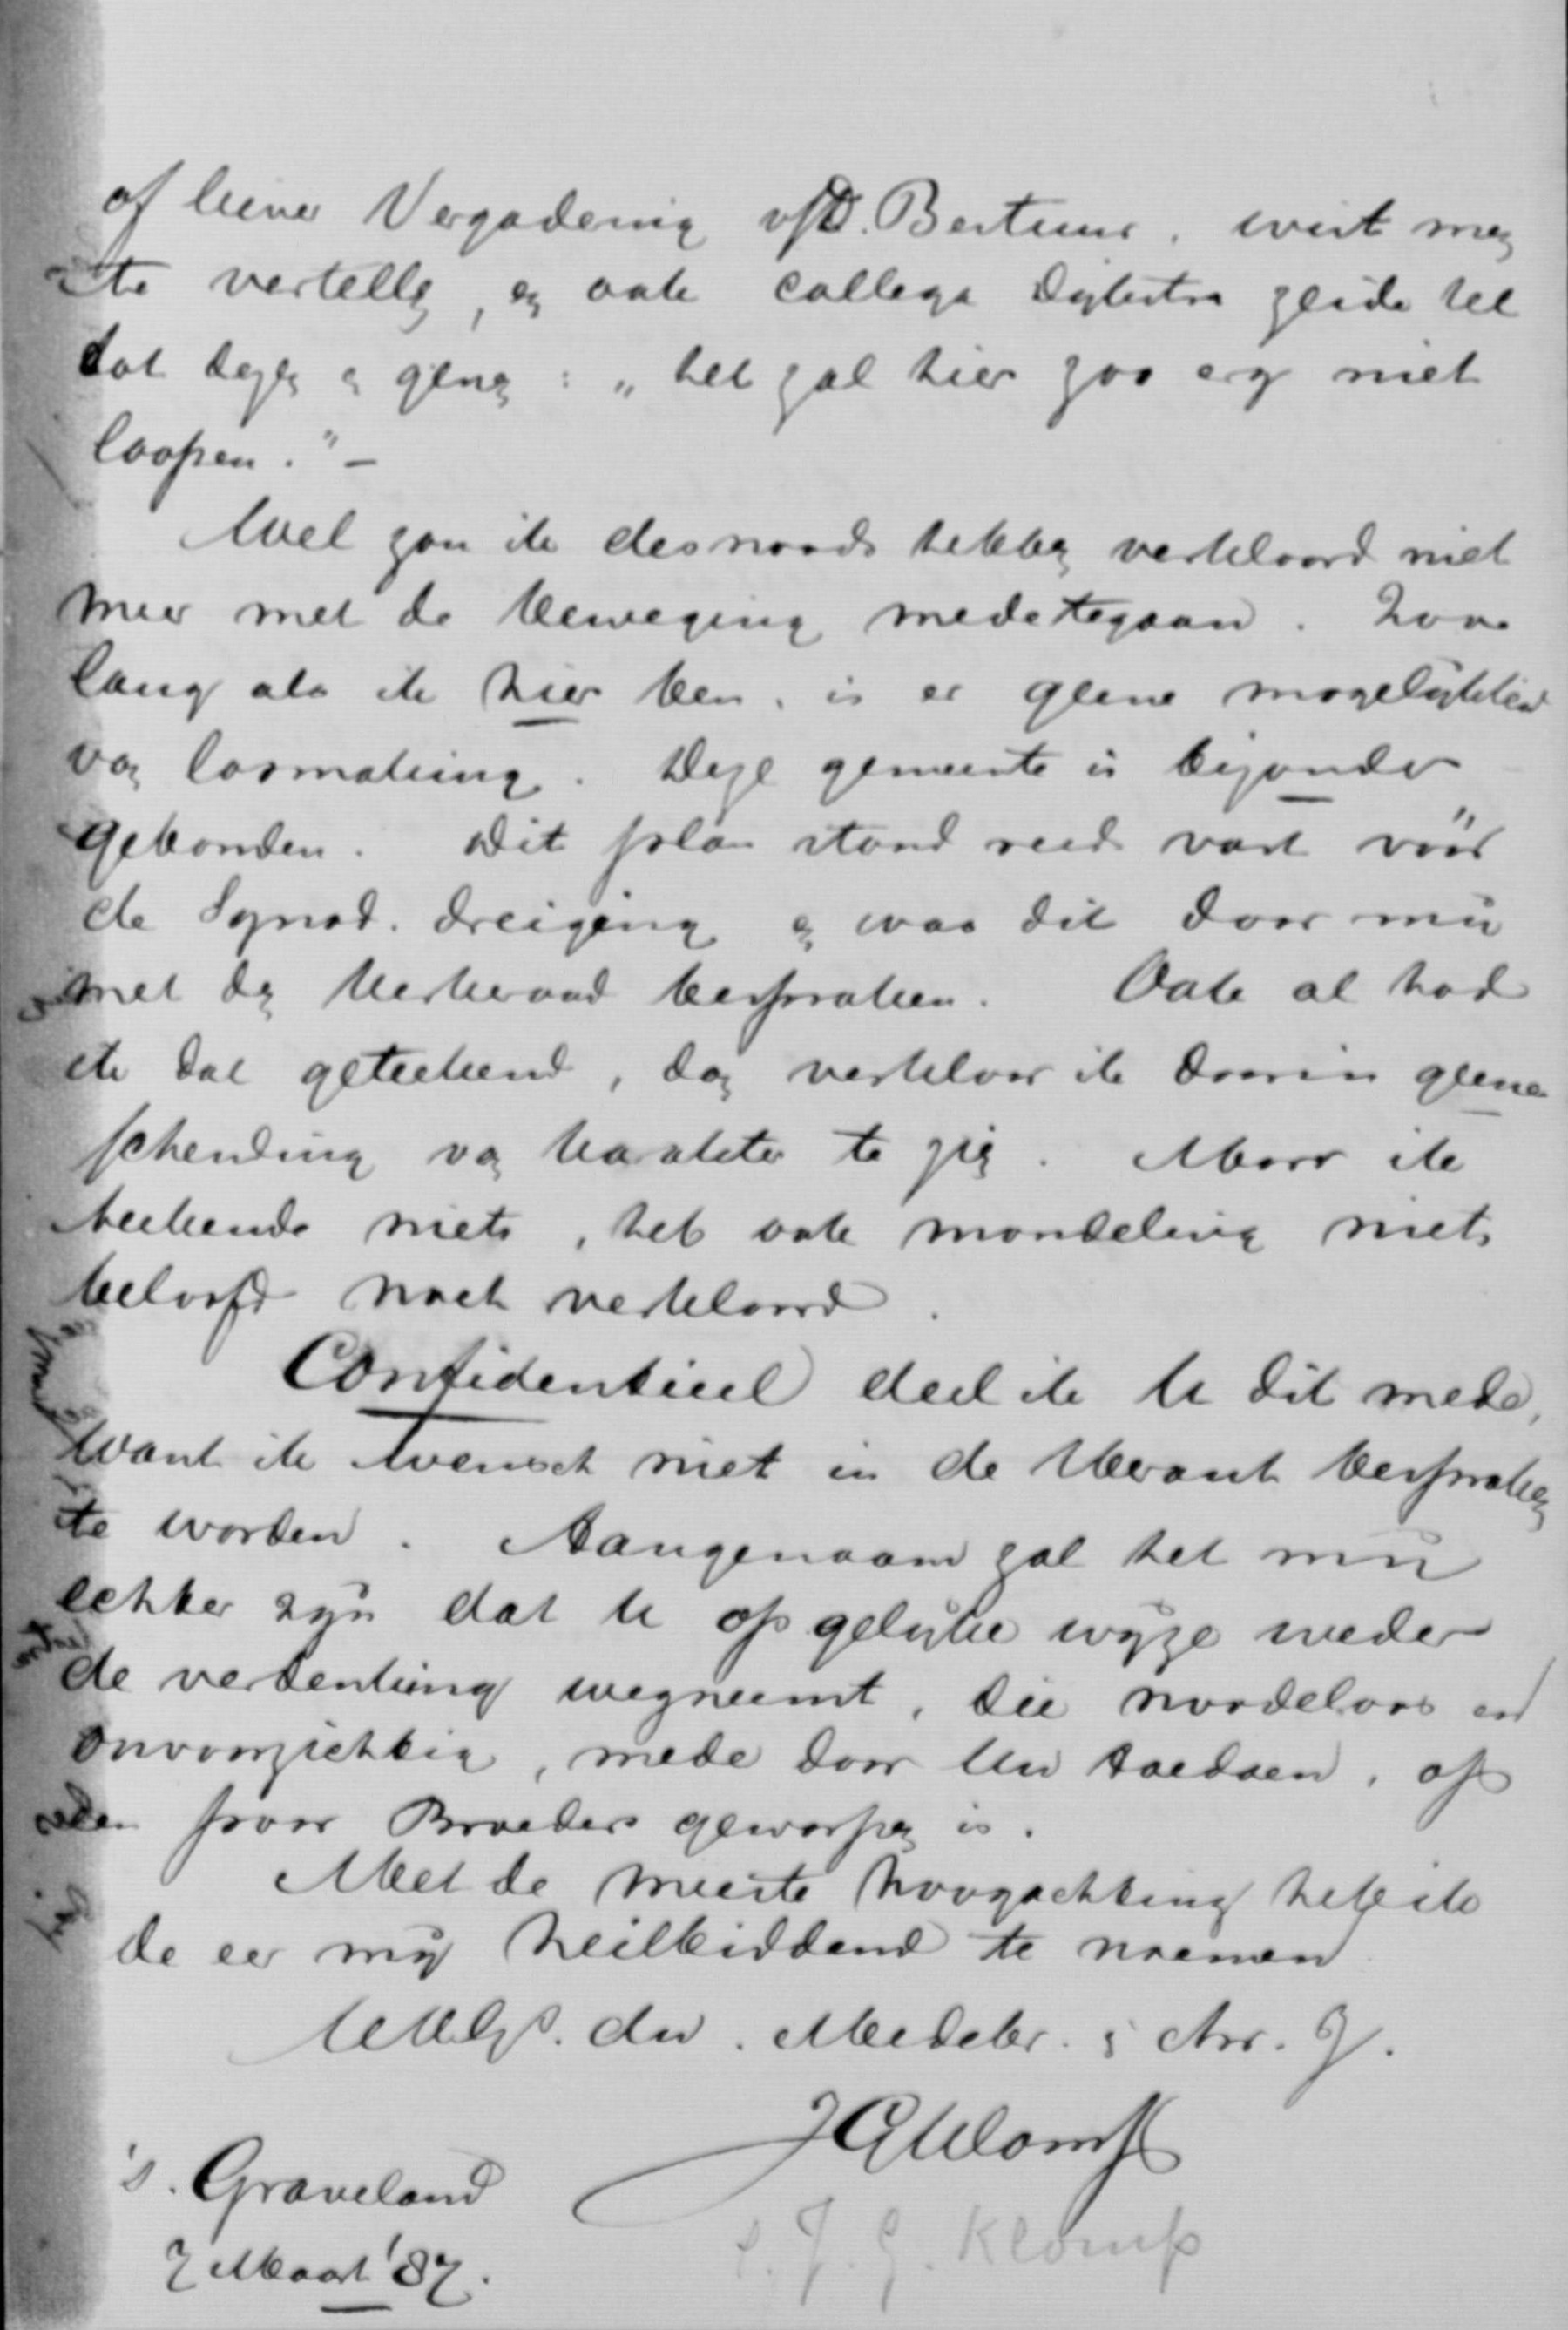 of liever Vergadering v/h D. Bestuur, wist men
te vertellen, en ook collega Dijkstra zeide het
tot dezen en genen: „het zal hier zoo erg niet
loopen." –
Wel zou ik desnoods hebben verklaard niet
meer met de beweging medetegaan. Zoo
lang als ik hier ben, is er geene mogelijkheid
van losmaking. Deze gemeente is bijzonder
gebonden. Dit plan stond reeds vast vóór
de Synod. dreiging en was dit door mij
met den Kerkeraad besproken. Ook al had
ik dat geteekend, dan verklaar ik daarin geene
schending van karakter te zien. Maar ik
teekende niets, heb ook mondeling niets
beloofd noch verklaard.
Confidentieel deel ik U dit mede,
want ik wensch niet in de Heraut besproken
te worden. Aangenaam zal het mij
echter zijn dat U op gelijke wijze weder
de verdenking wegneemt, die noodeloos en
onvoorzichtig, mede door Uw toedoen, op
een paar Broeders geworpen is.
Met de meeste hoogachting heb ik
de eer mij heilbiddend te noemen
dw. Medebr. in Chr. J.
JGKlomp
's. Graveland
7 Maart '87.
s. J. G. Klomp